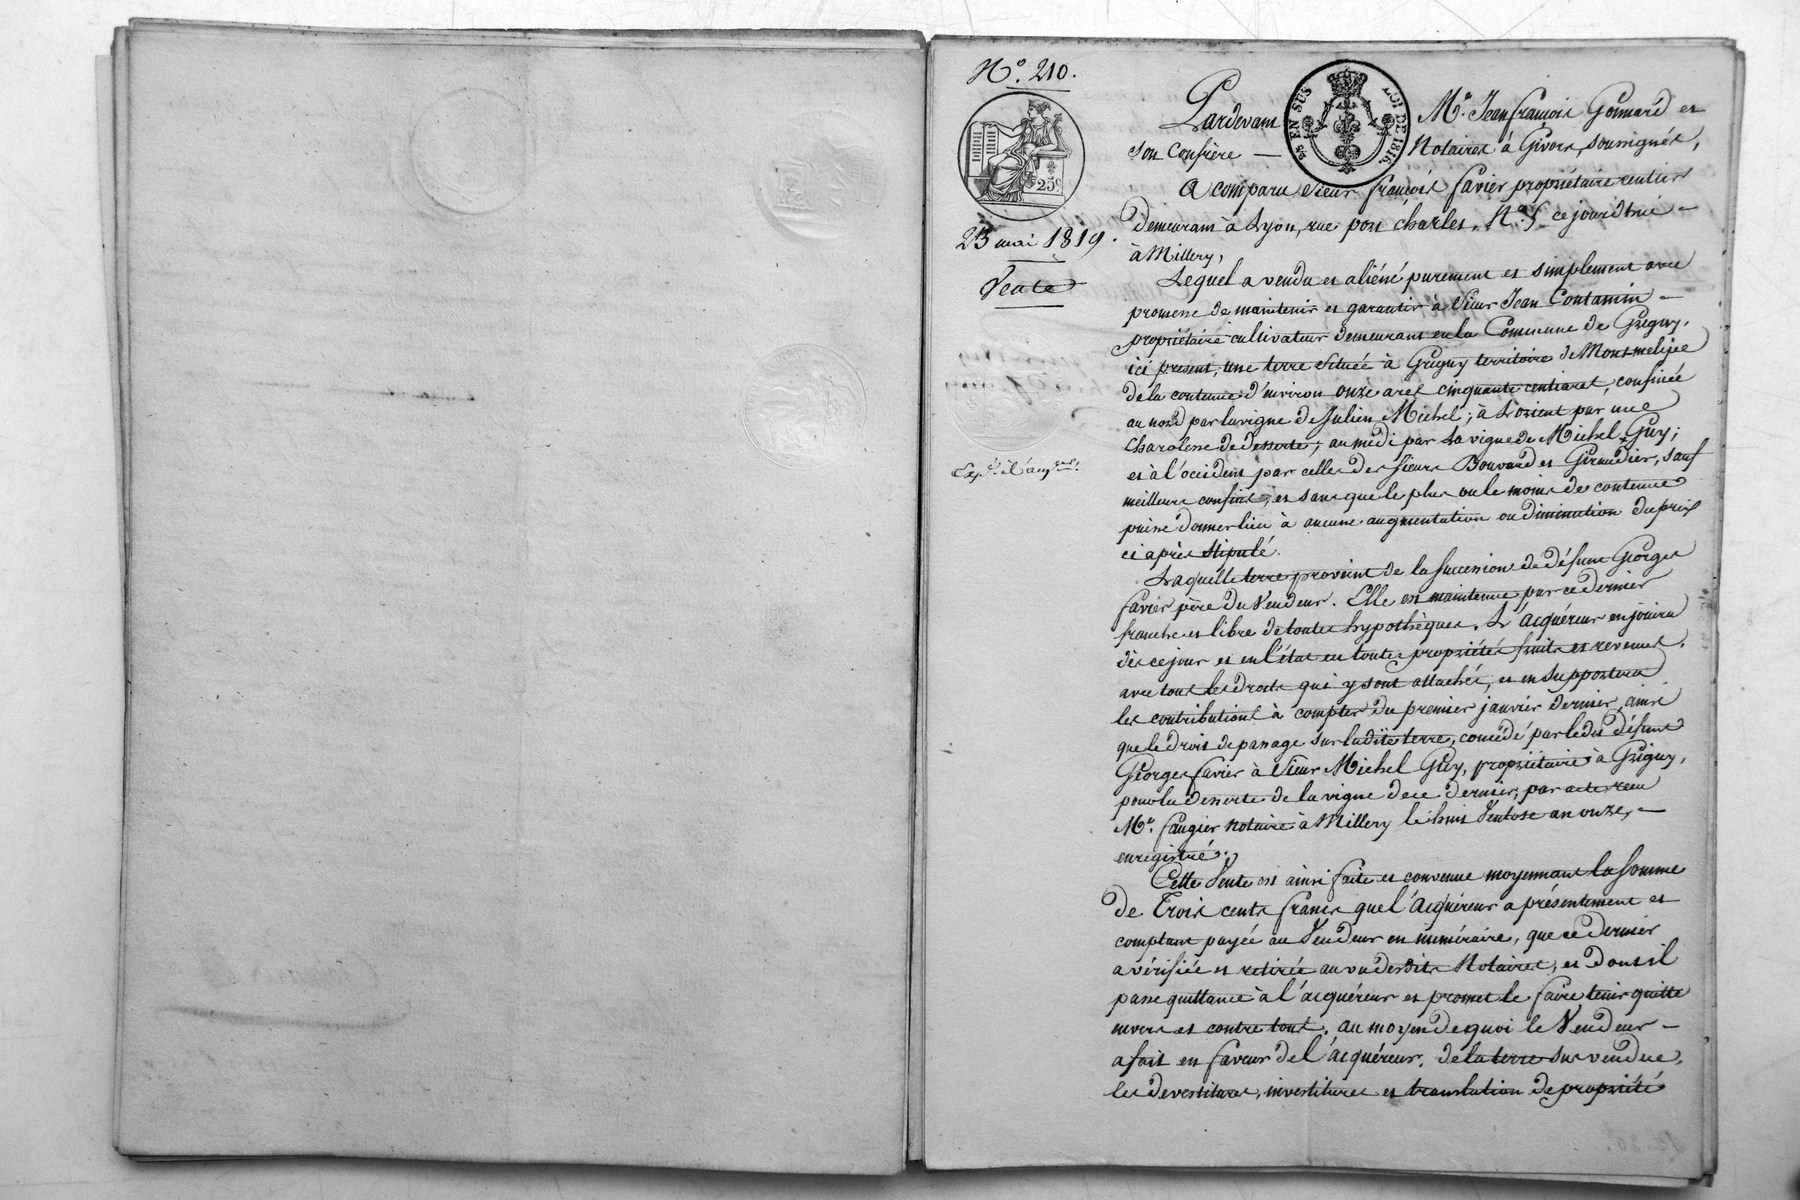 N.° 210.
25 c.
23 mai 1819.
Vente
Exp.
EN SUS
LOI DE 1816.
Pardevant M.e Jean françois Gonnard et
son Confrère — Notaires à Givors, soussignés,
A comparu Sieur françois favier propriétaire rentier
demeurant à Lyon, rue port charles, N.° 5 ce jourd'hui —
à Millery,
Lequel a vendu et aliéné purement et simplement avec
promesse de maintenir et garantir à Sieur Jean Contamin —
propriétaire cultivateur demeurant en la Commune de Grigny,
ici présent, une terre située à Grigny territoire de Montmelipée
de la contenue d'environ onze ares cinquante centiares, confinée
au nord par la vigne de Julien Michel; à L'orient par une
charolesse de desserte; au midi par La vigne de Michel Guy;
et à l'occident par celles des sieurs Bouvard et Giraudier, sauf
meilleurs confins, et sans que le plus ou le moins de contenue
puisse donner lieu à aucune augmentation ou diminution du prix
ci après stipulé.
Laquelle terre provient de la succession de défunt Georges
favier père du Vendeur. Elle est maintenue par ce dernier
franche et libre de toutes hypothèques. L'acquéreur en jouira
dès ce jour et en l'état en toutes propriétés fruits et revenus,
avec tous les droits qui y sont attachés, et en supportera
les contributions à compter du premier janvier dernier, ainsi
que le droit de passage sur ladite terre, concédé par ledit défunt
Georges favier à Sieur Michel Guy, propriétaire à Grigny,
pour la desserte de la vigne de ce dernier, par acte reçu
M.e faugier notaire à Millery le huit Ventose an onze, —
enregistré.
Cette Vente est ainsi faite et convenue moyennant la somme
de Trois cents francs que l'acquéreur a présentement et
comptant payée au Vendeur en numéraire, que ce dernier
a vérifiée et retirée au vu desdits Notaires, et dont il
passe quittance à l'acquéreur et promet le faire tenir quitte
envers et contre tous. au moyen de quoi le Vendeur —
a fait en faveur de l'acquéreur, de la terre sus vendue,
les devestitures, investitures et translation de propriété